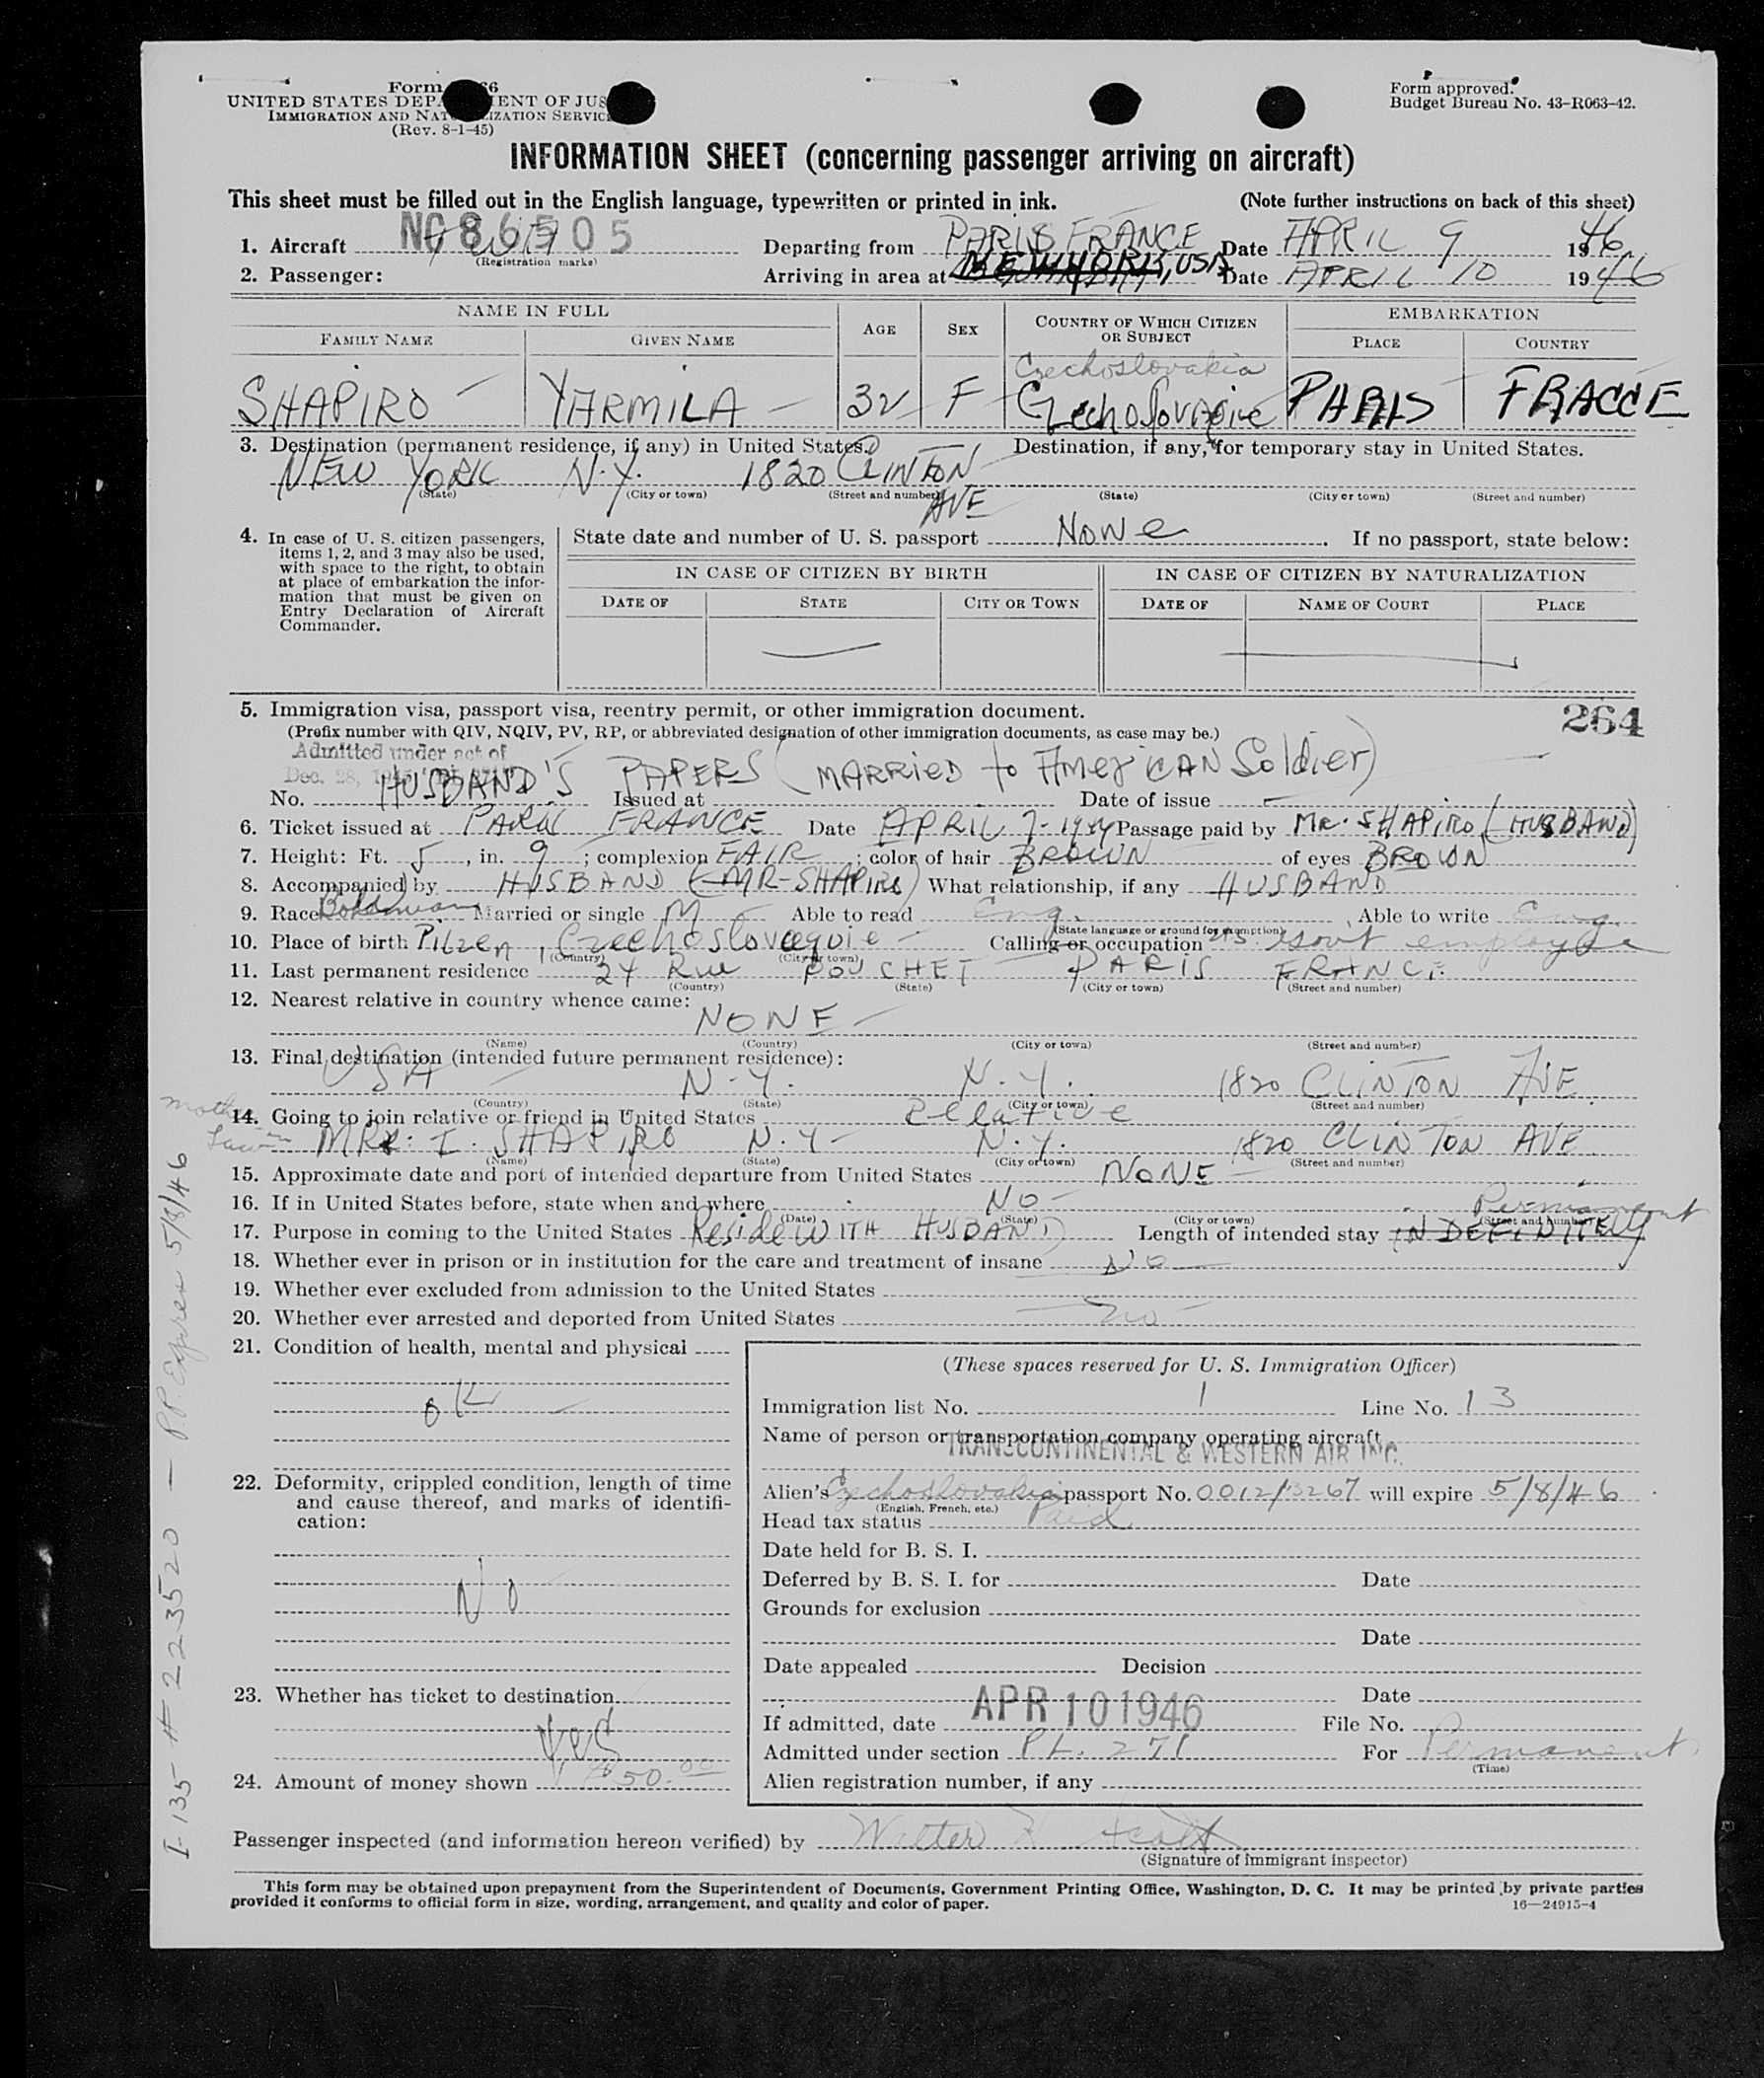 Form 66
UNITED STATES DEPA ENT OF JUS
IMMIGRATION AND NAT IZATION SERVIC
(Rev. 8-1-45)
Form approved.
Budget Bureau No. 43-R063-42.
INFORMATION SHEET (concerning passenger arriving on aircraft)
This sheet must be filled out in the English language, typewritten or printed in ink. (Note further instructions on back of this sheet)
1. Aircraft NC 86505 TWA Departing from PARIS FRANCE Date APRIL 9 1946
(Registration marks)
2. Passenger: Arriving in area at NEW YORK, USA Date APRIL 10 1946
NAME IN FULL AGE SEX COUNTRY OF WHICH CITIZEN OR SUBJECT EMBARKATION
FAMILY NAME GIVEN NAME PLACE COUNTRY
Czechoslovakia
SHAPIRO YARMILA 32 F PARIS FRACCE
3. Destination (permanent residence, if any) in United States. Destination, if any, for temporary stay in United States.
NEW YORK N.Y. 1820 CLINTON
(State) (City or town) (Street and number) (State) (City or town) (Street and number)
AVE
4. In case of U. S. citizen passengers, items 1, 2, and 3 may also be used, with space to the right, to obtain at place of embarkation the information that must be given on Entry Declaration of Aircraft Commander.
State date and number of U. S. passport NONe. If no passport, state below:
IN CASE OF CITIZEN BY BIRTH IN CASE OF CITIZEN BY NATURALIZATION
DATE OF STATE CITY OR TOWN DATE OF NAME OF COURT PLACE
5. Immigration visa, passport visa, reentry permit, or other immigration document. 264
(Prefix number with QIV, NQIV, PV, RP, or abbreviated designation of other immigration documents, as case may be.)
Admitted under act of
Dec. 28,
HUSBAND'S PAPERS (MARRIED to AMERICAN Soldier)
No. Issued at Date of issue
6. Ticket issued at PARIS FRANCE Date APRIL 7- Passage paid by MR. SHAPIRO (HUSBAND)
7. Height: Ft. 5, in. 9; complexion FAIR; color of hair BROWN of eyes BROWN
8. Accompanied by HUSBAND (MR-SHAPIRO) What relationship, if any HUSBAND
9. Race Bohemian Married or single M Able to read Eng. , Able to write Eng.
(State language or ground for exemption)
10. Place of birth Pilzen, Czechoslovaquie Calling or occupation US Gov't employee
(Country) (City or town)
11. Last permanent residence 24 Rue POUCHET PARIS FRANCE
(Country) (State) (City or town) (Street and number)
12. Nearest relative in country whence came:
NONE
(Name) (Country) (City or town) (Street and number)
13. Final destination (intended future permanent residence):
USA N.Y. N.Y. 1820 CLINTON AVE.
(Country) (State) (City or town) (Street and number)
14. Going to join relative or friend in United States Relative
mother in Law MRS. I. SHAPIRO N.Y. N.Y. 1820 CLINTON AVE
(Name) (State) (City or town) (Street and number)
15. Approximate date and port of intended departure from United States NONE
16. If in United States before, state when and where NO
(Date) (State) (City or town) (Street and number)
Permanent
17. Purpose in coming to the United States Reside WITH HUSBAND Length of intended stay INDEFINITELY
18. Whether ever in prison or in institution for the care and treatment of insane NO
19. Whether ever excluded from admission to the United States
20. Whether ever arrested and deported from United States no
21. Condition of health, mental and physical
OK
22. Deformity, crippled condition, length of time and cause thereof, and marks of identification:
NO
23. Whether has ticket to destination
Yes
24. Amount of money shown $50.00
(These spaces reserved for U. S. Immigration Officer)
Immigration list No. 1 Line No. 13
Name of person or transportation company operating aircraft
TRANSCONTINENTAL & WESTERN AIR INC.
Alien's Czechoslovakia passport No. 0012/13267 will expire 5/8/46
(English, French, etc.)
Head tax status Paid
Date held for B. S. I.
Deferred by B. S. I. for Date
Grounds for exclusion
Date
Date appealed Decision
Date
If admitted, date APR 10 1946 File No.
Admitted under section P.L. 271 For Permanent
(Time)
Alien registration number, if any
Passenger inspected (and information hereon verified) by Walter
(Signature of immigrant inspector)
This form may be obtained upon prepayment from the Superintendent of Documents, Government Printing Office, Washington, D. C. It may be printed by private parties
provided it conforms to official form in size, wording, arrangement, and quality and color of paper. 16—24915-4
I-135-# 223520 — P.P. Expires 5/8/46